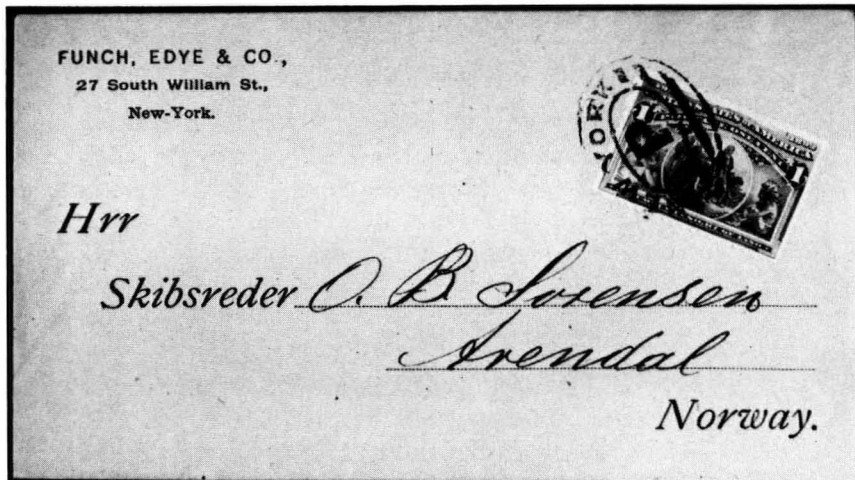 FUNCH, EDYE & CO.,
27 South William St.,
New-York.
YORK
1
1
Hrr
Skibsreder O. B. Sorensen
Arendal
Norway.